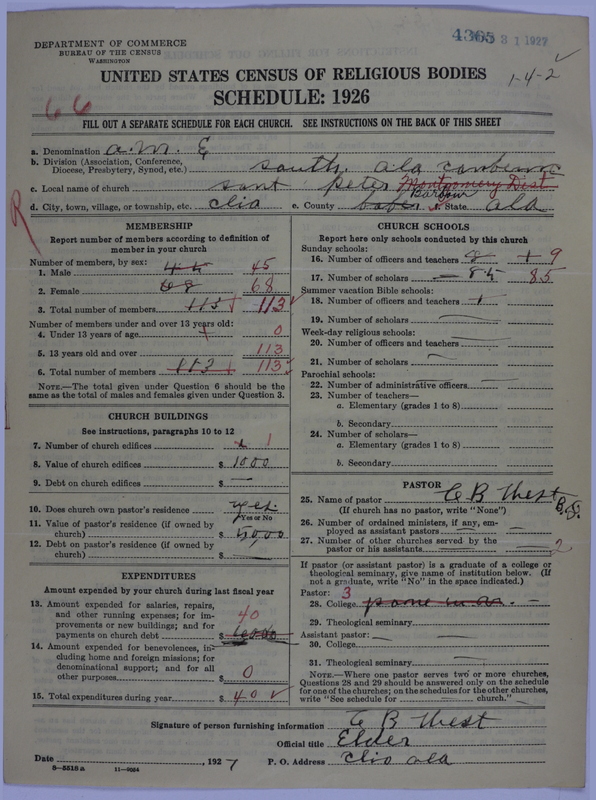 DEPARTMENT OF COMMERCE
BUREAU OF THE CENSUS
WASHINGTON
4365
31 1927
1-4-2
UNITED STATES CENSUS OF RELIGIOUS BODIES
SCHEDULE: 1926
66
FILL OUT A SEPARATE SCHEDULE FOR EACH CHURCH. SEE INSTRUCTIONS ON THE BACK OF THIS SHEET
a. Denomination a. m. E
b. Division (Association, Conference,
Diocese, Presbytery, Synod, etc.) south. ala
c. Local name of church sant peter Montgomery Dist
d. City, town, village, or township, etc. Clio e. County Barbour f. State ala
R
MEMBERSHIP
Report number of members according to definition of
member in your church
Number of members, by sex:
1. Male 45 45
2. Female 68 68
3. Total number of members 113 113
Number of members under and over 13 years old:
4. Under 13 years of age 0
5. 13 years old and over 113
6. Total number of members 113 113
NOTE.—The total given under Question 6 should be the
same as the total of males and females given under Question 3.
CHURCH BUILDINGS
See instructions, paragraphs 10 to 12
7. Number of church edifices 1 1
8. Value of church edifices $ 1000
9. Debt on church edifices $ —
10. Does church own pastor's residence yes
Yes or No
11. Value of pastor's residence (if owned by
church) $ 50,00
12. Debt on pastor's residence (if owned by
church) $ —
EXPENDITURES
Amount expended by your church during last fiscal year
13. Amount expended for salaries, repairs,
and other running expenses; for im-
provements or new buildings; and for
payments on church debt $ 40
14. Amount expended for benevolences, in-
cluding home and foreign missions; for
denominational support; and for all
other purposes $ 0
15. Total expenditures during year $ 40
CHURCH SCHOOLS
Report here only schools conducted by this church
Sunday schools:
16. Number of officers and teachers 9
17. Number of scholars 85 85
Summer vacation Bible schools:
18. Number of officers and teachers
19. Number of scholars —
Week-day religious schools:
20. Number of officers and teachers —
21. Number of scholars —
Parochial schools:
22. Number of administrative officers —
23. Number of teachers—
a. Elementary (grades 1 to 8)
b. Secondary
24. Number of scholars—
a. Elementary (grades 1 to 8)
b. Secondary
PASTOR
25. Name of pastor C B West
(If church has no pastor, write "None")
26. Number of ordained ministers, if any, em-
ployed as assistant pastors —
27. Number of other churches served by the
pastor or his assistants 2
If pastor (or assistant pastor) is a graduate of a college or
theological seminary, give name of institution below. (If
not a graduate, write "No" in the space indicated.)
Pastor: 3
28. College —
29. Theological seminary —
Assistant pastor: —
30. College —
31. Theological seminary —
NOTE.—Where one pastor serves two or more churches,
Questions 28 and 29 should be answered only on the schedule
for one of the churches; on the schedules for the other churches,
write "See schedule for church."
Signature of person furnishing information C B West
Official title Elder
Date , 1927 P. O. Address Clio ala
8—5515 a 11—9094